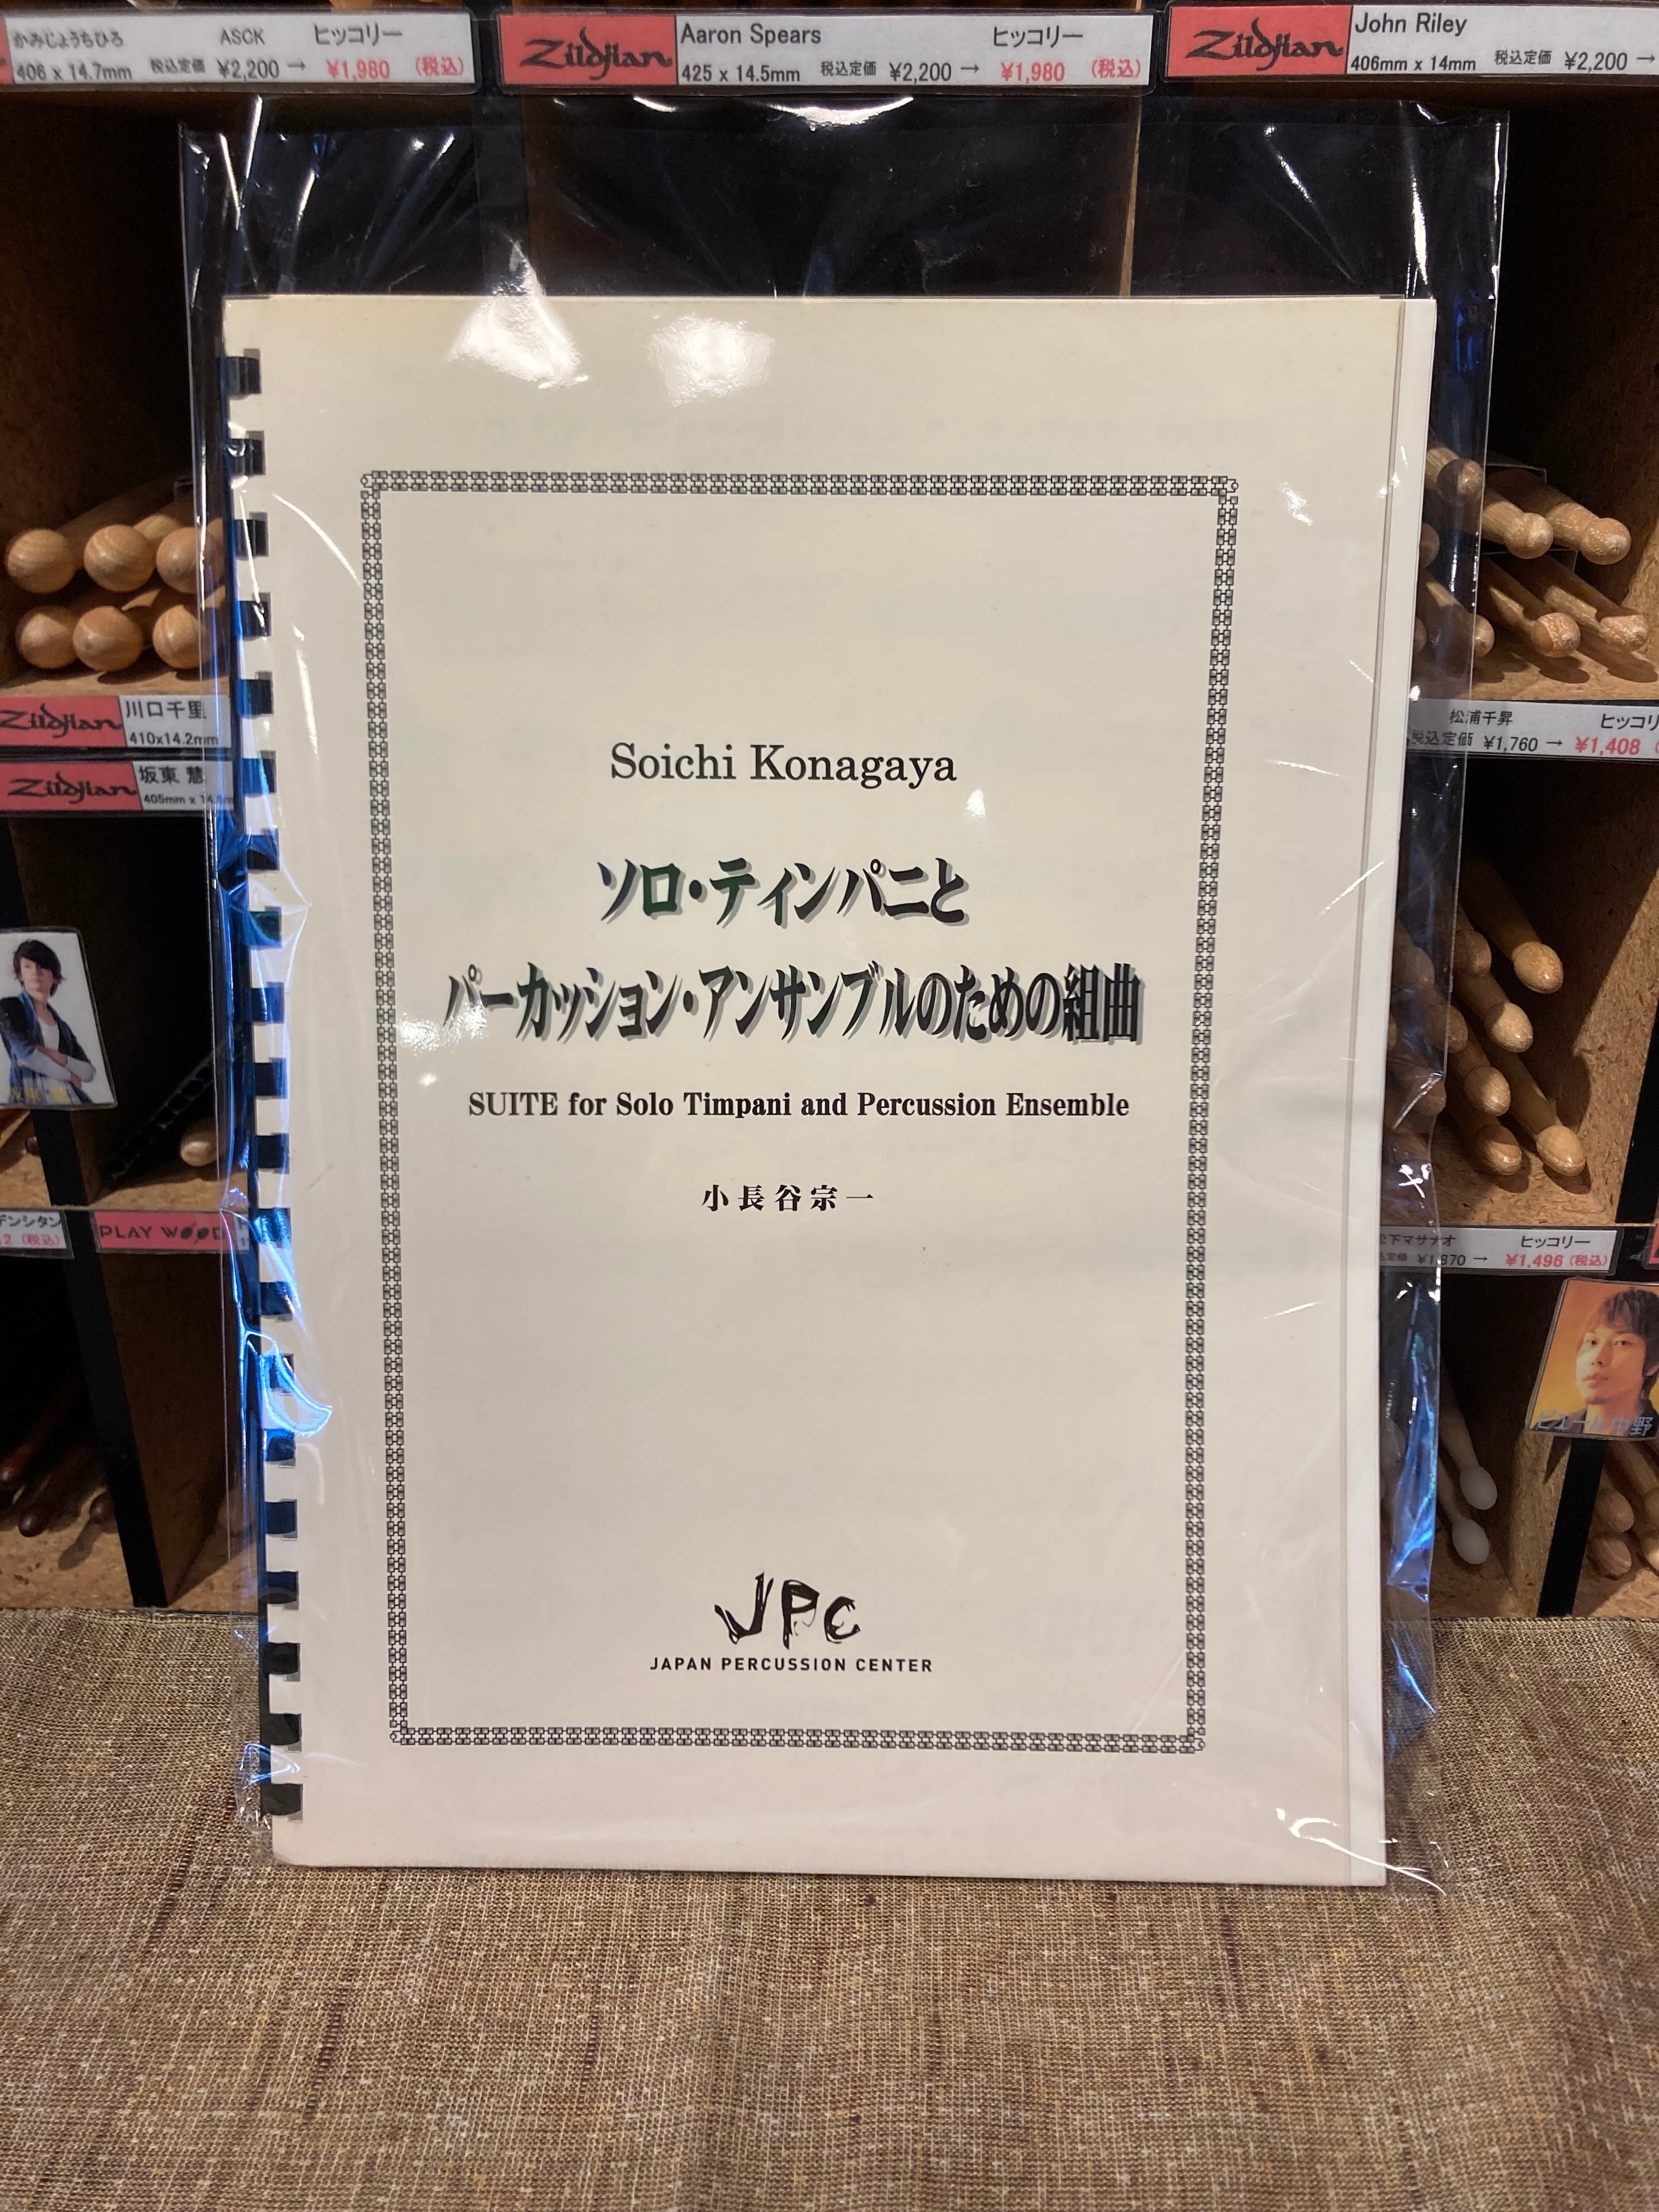 かみじょうちひろ ASCK ヒッコリー
406 x 14.7mm 税込定価 ¥2,200 → ¥1,980 (税込)
Zildjian Aaron Spears ヒッコリー
425 x 14.5mm 税込定価 ¥2,200 → ¥1,980 (税込)
Zildjian John Riley
406mm x 14mm 税込定価 ¥2,200 →
Zildjian 川口千里
410x14.2mm
Zildjian 坂東 慧
405mm x
松浦千昇 ヒッコリ
税込定価 ¥1,760 → ¥1,408
Soichi Konagaya
ソロ・ティンパニと
パーカッション・アンサンブルのための組曲
SUITE for Solo Timpani and Percussion Ensemble
小長谷宗一
デンシタン
(税込)
PLAY WOOD
下マサナオ ヒッコリー
¥1,870 → ¥1,496 (税込)
ピエール中野
JPC
JAPAN PERCUSSION CENTER